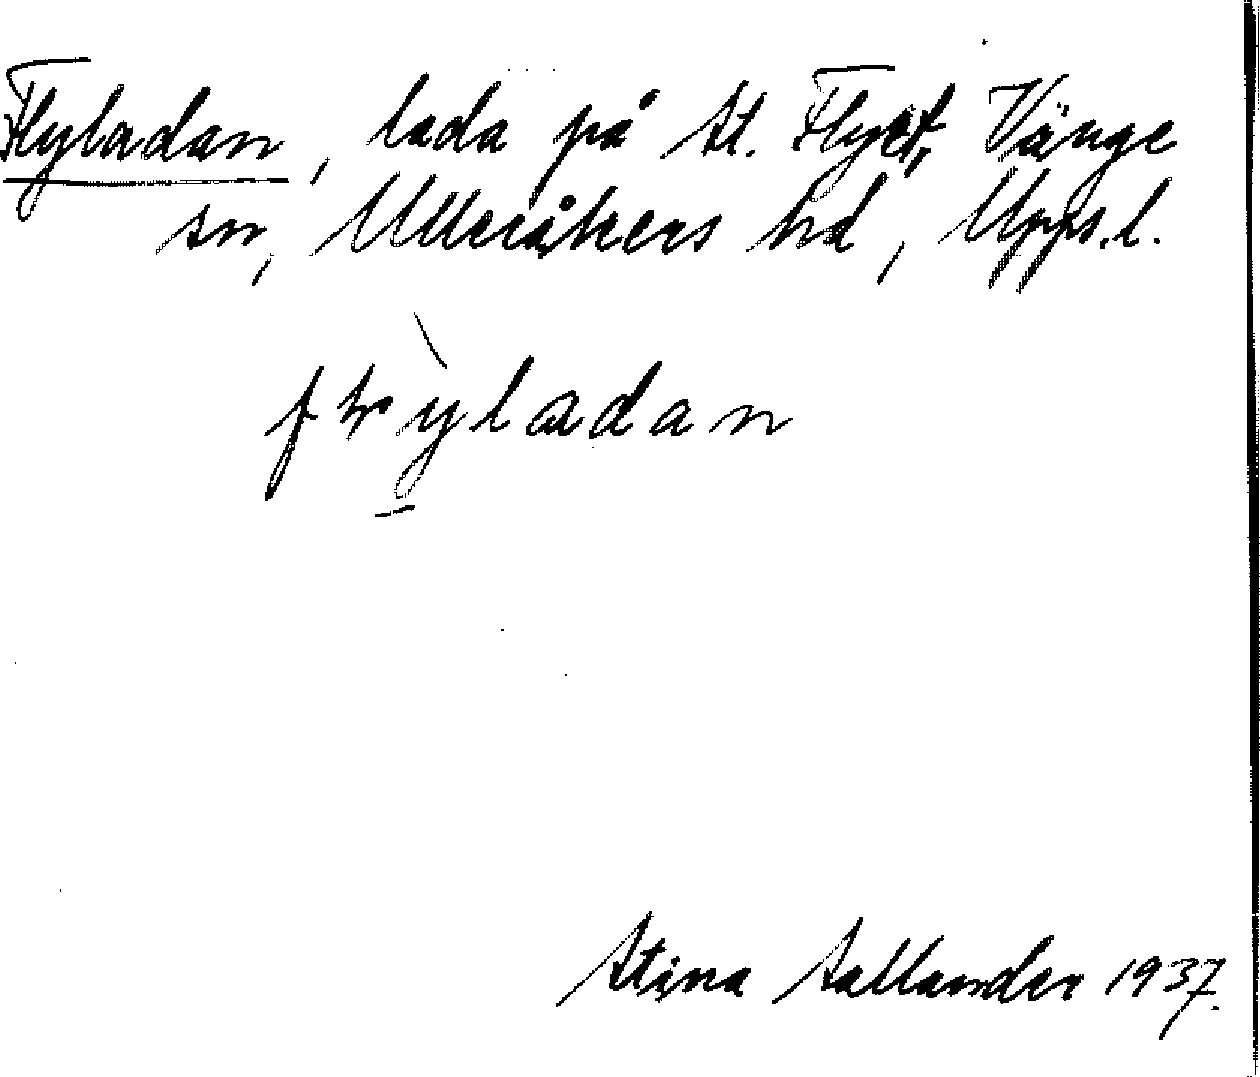 Flyladan, lada på St. Flyet, Vänge
sn, Ulleråkers hd, Upps.l.
Stina Sallander 1937.